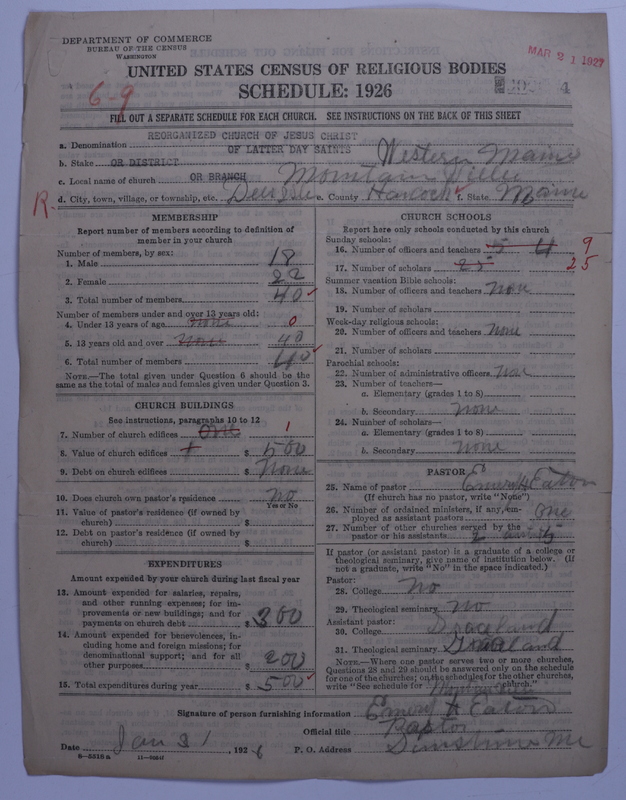 DEPARTMENT OF COMMERCE
BUREAU OF THE CENSUS
WASHINGTON
MAR 21 1927
UNITED STATES CENSUS OF RELIGIOUS BODIES
SCHEDULE: 1926
4
6-9
FILL OUT A SEPARATE SCHEDULE FOR EACH CHURCH. SEE INSTRUCTIONS ON THE BACK OF THIS SHEET
REORGANIZED CHURCH OF JESUS CHRIST
a. Denomination OF LATTER DAY SAINTS
b. Stake OR DISTRICT Western Maine
c. Local name of church OR BRANCH Mountain
R. d. City, town, village, or township, etc. e. County Hancock f. State Maine
MEMBERSHIP
Report number of members according to definition of
member in your church
Number of members, by sex:
1. Male 18
2. Female 22
3. Total number of members 40
Number of members under and over 13 years old:
4. Under 13 years of age none 0
5. 13 years old and over none 40
6. Total number of members 40
NOTE.—The total given under Question 6 should be the
same as the total of males and females given under Question 3.
CHURCH BUILDINGS
See instructions, paragraphs 10 to 12
7. Number of church edifices one 1
8. Value of church edifices $ 500
9. Debt on church edifices $ None
10. Does church own pastor's residence no
Yes or No
11. Value of pastor's residence (if owned by
church) $
12. Debt on pastor's residence (if owned by
church) $
EXPENDITURES
Amount expended by your church during last fiscal year
13. Amount expended for salaries, repairs,
and other running expenses; for im-
provements or new buildings; and for
payments on church debt $ 300
14. Amount expended for benevolences, in-
cluding home and foreign missions; for
denominational support; and for all
other purposes $ 200
15. Total expenditures during year $ 500
CHURCH SCHOOLS
Report here only schools conducted by this church
Sunday schools:
16. Number of officers and teachers 5 4 9
17. Number of scholars 25 25
Summer vacation Bible schools:
18. Number of officers and teachers none
19. Number of scholars
Week-day religious schools:
20. Number of officers and teachers none
21. Number of scholars
Parochial schools:
22. Number of administrative officers none
23. Number of teachers—
a. Elementary (grades 1 to 8)
b. Secondary none
24. Number of scholars—
a. Elementary (grades 1 to 8)
b. Secondary none
PASTOR
25. Name of pastor Emery H Eaton
(If church has no pastor, write "None")
26. Number of ordained ministers, if any, em-
ployed as assistant pastors one
27. Number of other churches served by the
pastor or his assistants 2
If pastor (or assistant pastor) is a graduate of a college or
theological seminary, give name of institution below. (If
not a graduate, write "No" in the space indicated.)
Pastor:
28. College No
29. Theological seminary No
Assistant pastor:
30. College Graceland
31. Theological seminary Graceland
NOTE.—Where one pastor serves two or more churches,
Questions 28 and 29 should be answered only on the schedule
for one of the churches; on the schedules for the other churches,
write "See schedule for church."
Signature of person furnishing information Emery H Eaton
Official title Pastor
Date Jan 31, 1926 P. O. Address Sunshine Me
8-5518a